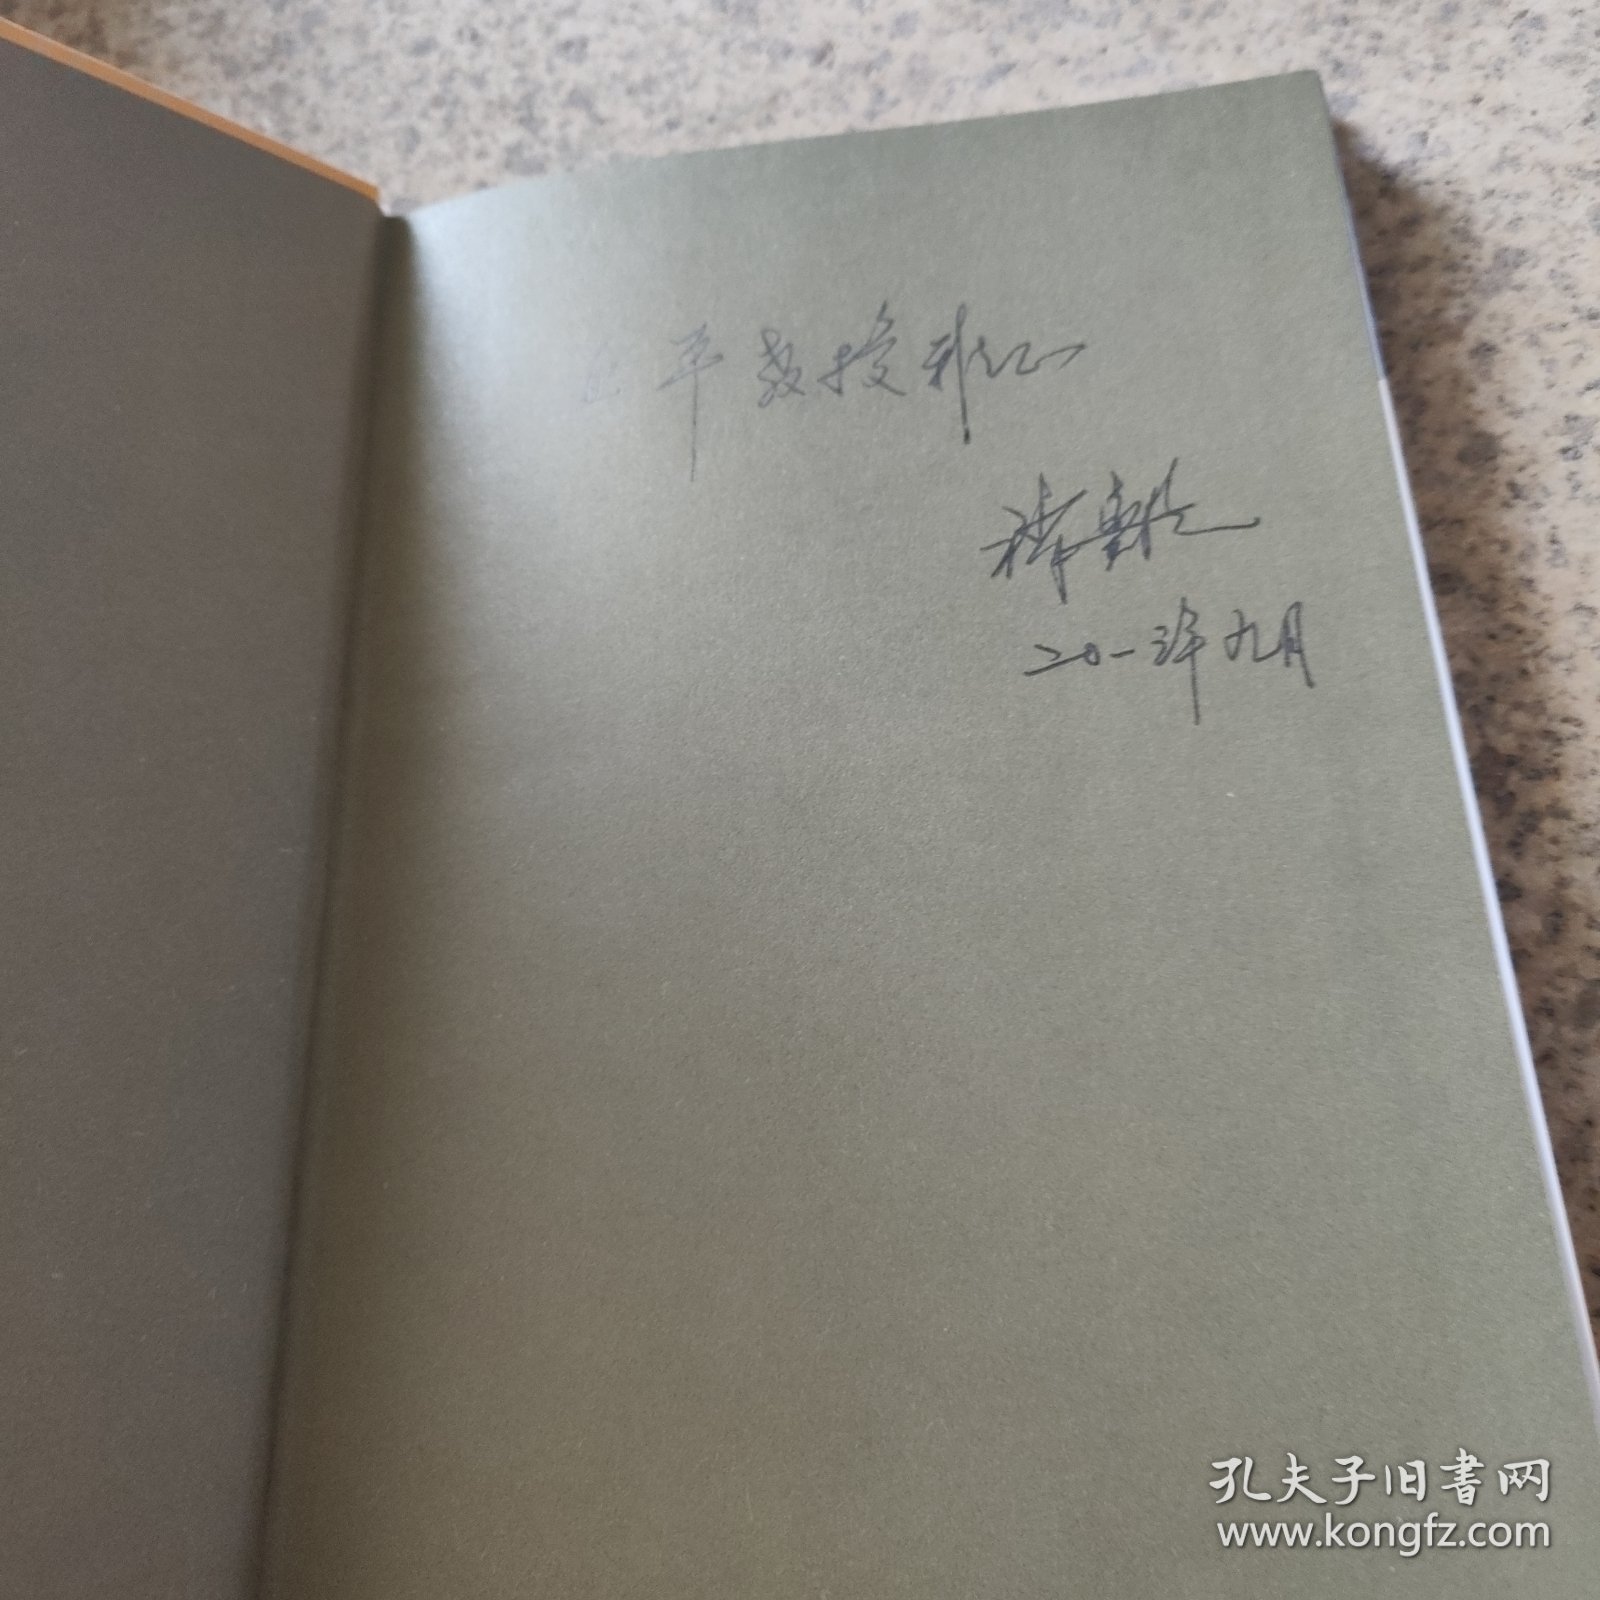 平教授雅正
二〇一三年九月
孔夫子旧书网
www.kongfz.com